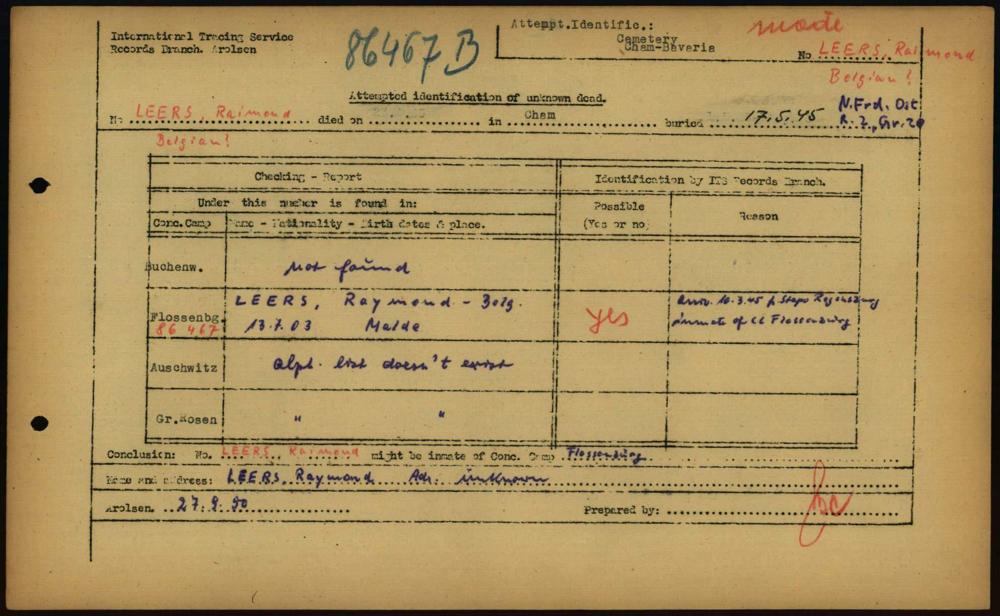 International Tracing Service
Records Branch. Arolsen
86467 B
Attempt.Identific.:
Cemetery
Cham-Bavaria
made
No LEERS, Raimond
Belgian!
Attempted identification of unknown dead.
No LEERS, Raimond died on in Cham buried 17.5.45
N.Frd. Ost
R. 2, Gr. 20
Belgian!
Checking - Report
Identification by ITS Records Branch.
Under this number is found in:
Conc.Camp Name - Nationality - Birth dates & place.
Possible
(Yes or no)
Reason
Buchenw. not found
Flossenbg. LEERS, Raymond - Belg.
86 467 13.7.03 Malde
yes
10.3.45 Stapo Regensburg
inmate of CC Flossenbürg
Auschwitz alph. list doesn't exist
Gr.Rosen " "
Conclusion: No. LEERS, Raimond might be inmate of Conc. Camp Flossenbürg
Name and address: LEERS, Raymond Adr. unknown
Arolsen. 27.9.50 Prepared by: